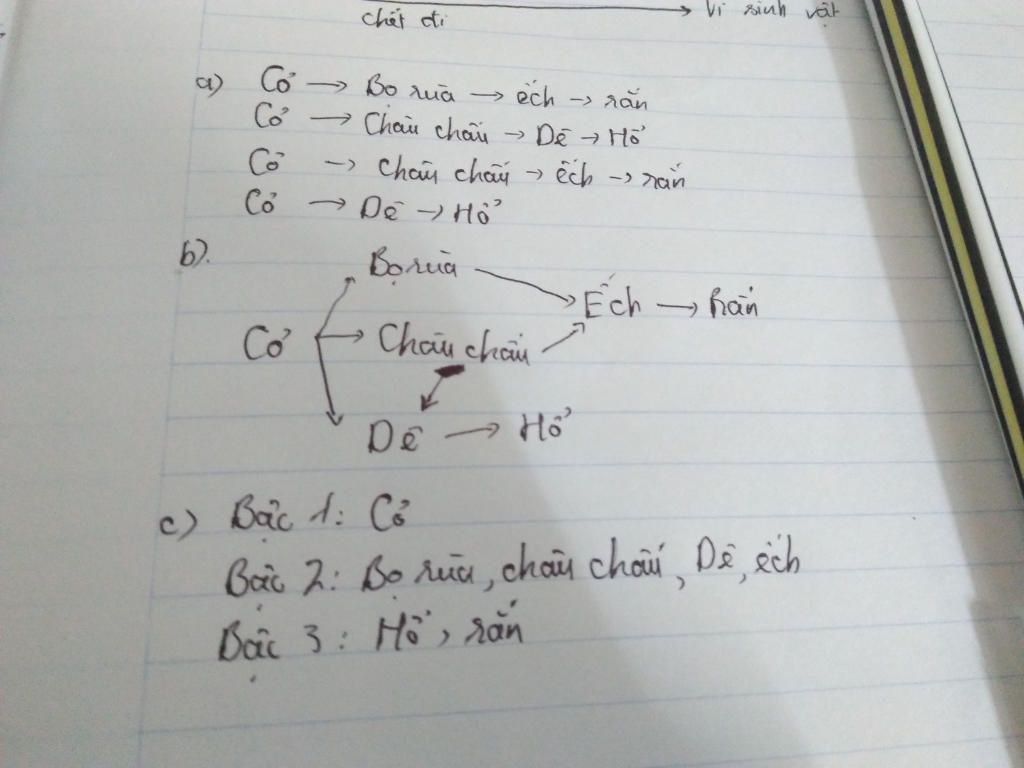 chết đi → Vi sinh vật
a) Cỏ → Bọ rùa → ếch → rắn
Cỏ → Châu chấu → Dê → Hổ
Cỏ → Châu chấu → ếch → rắn
Cỏ → Dê → Hổ
b).
Bọ rùa
Ếch → Rắn
Cỏ → Châu chấu
Dê → Hổ
c) Bậc 1: Cỏ
Bậc 2: Bọ rùa, châu chấu, Dê, ếch
Bậc 3: Hổ, rắn